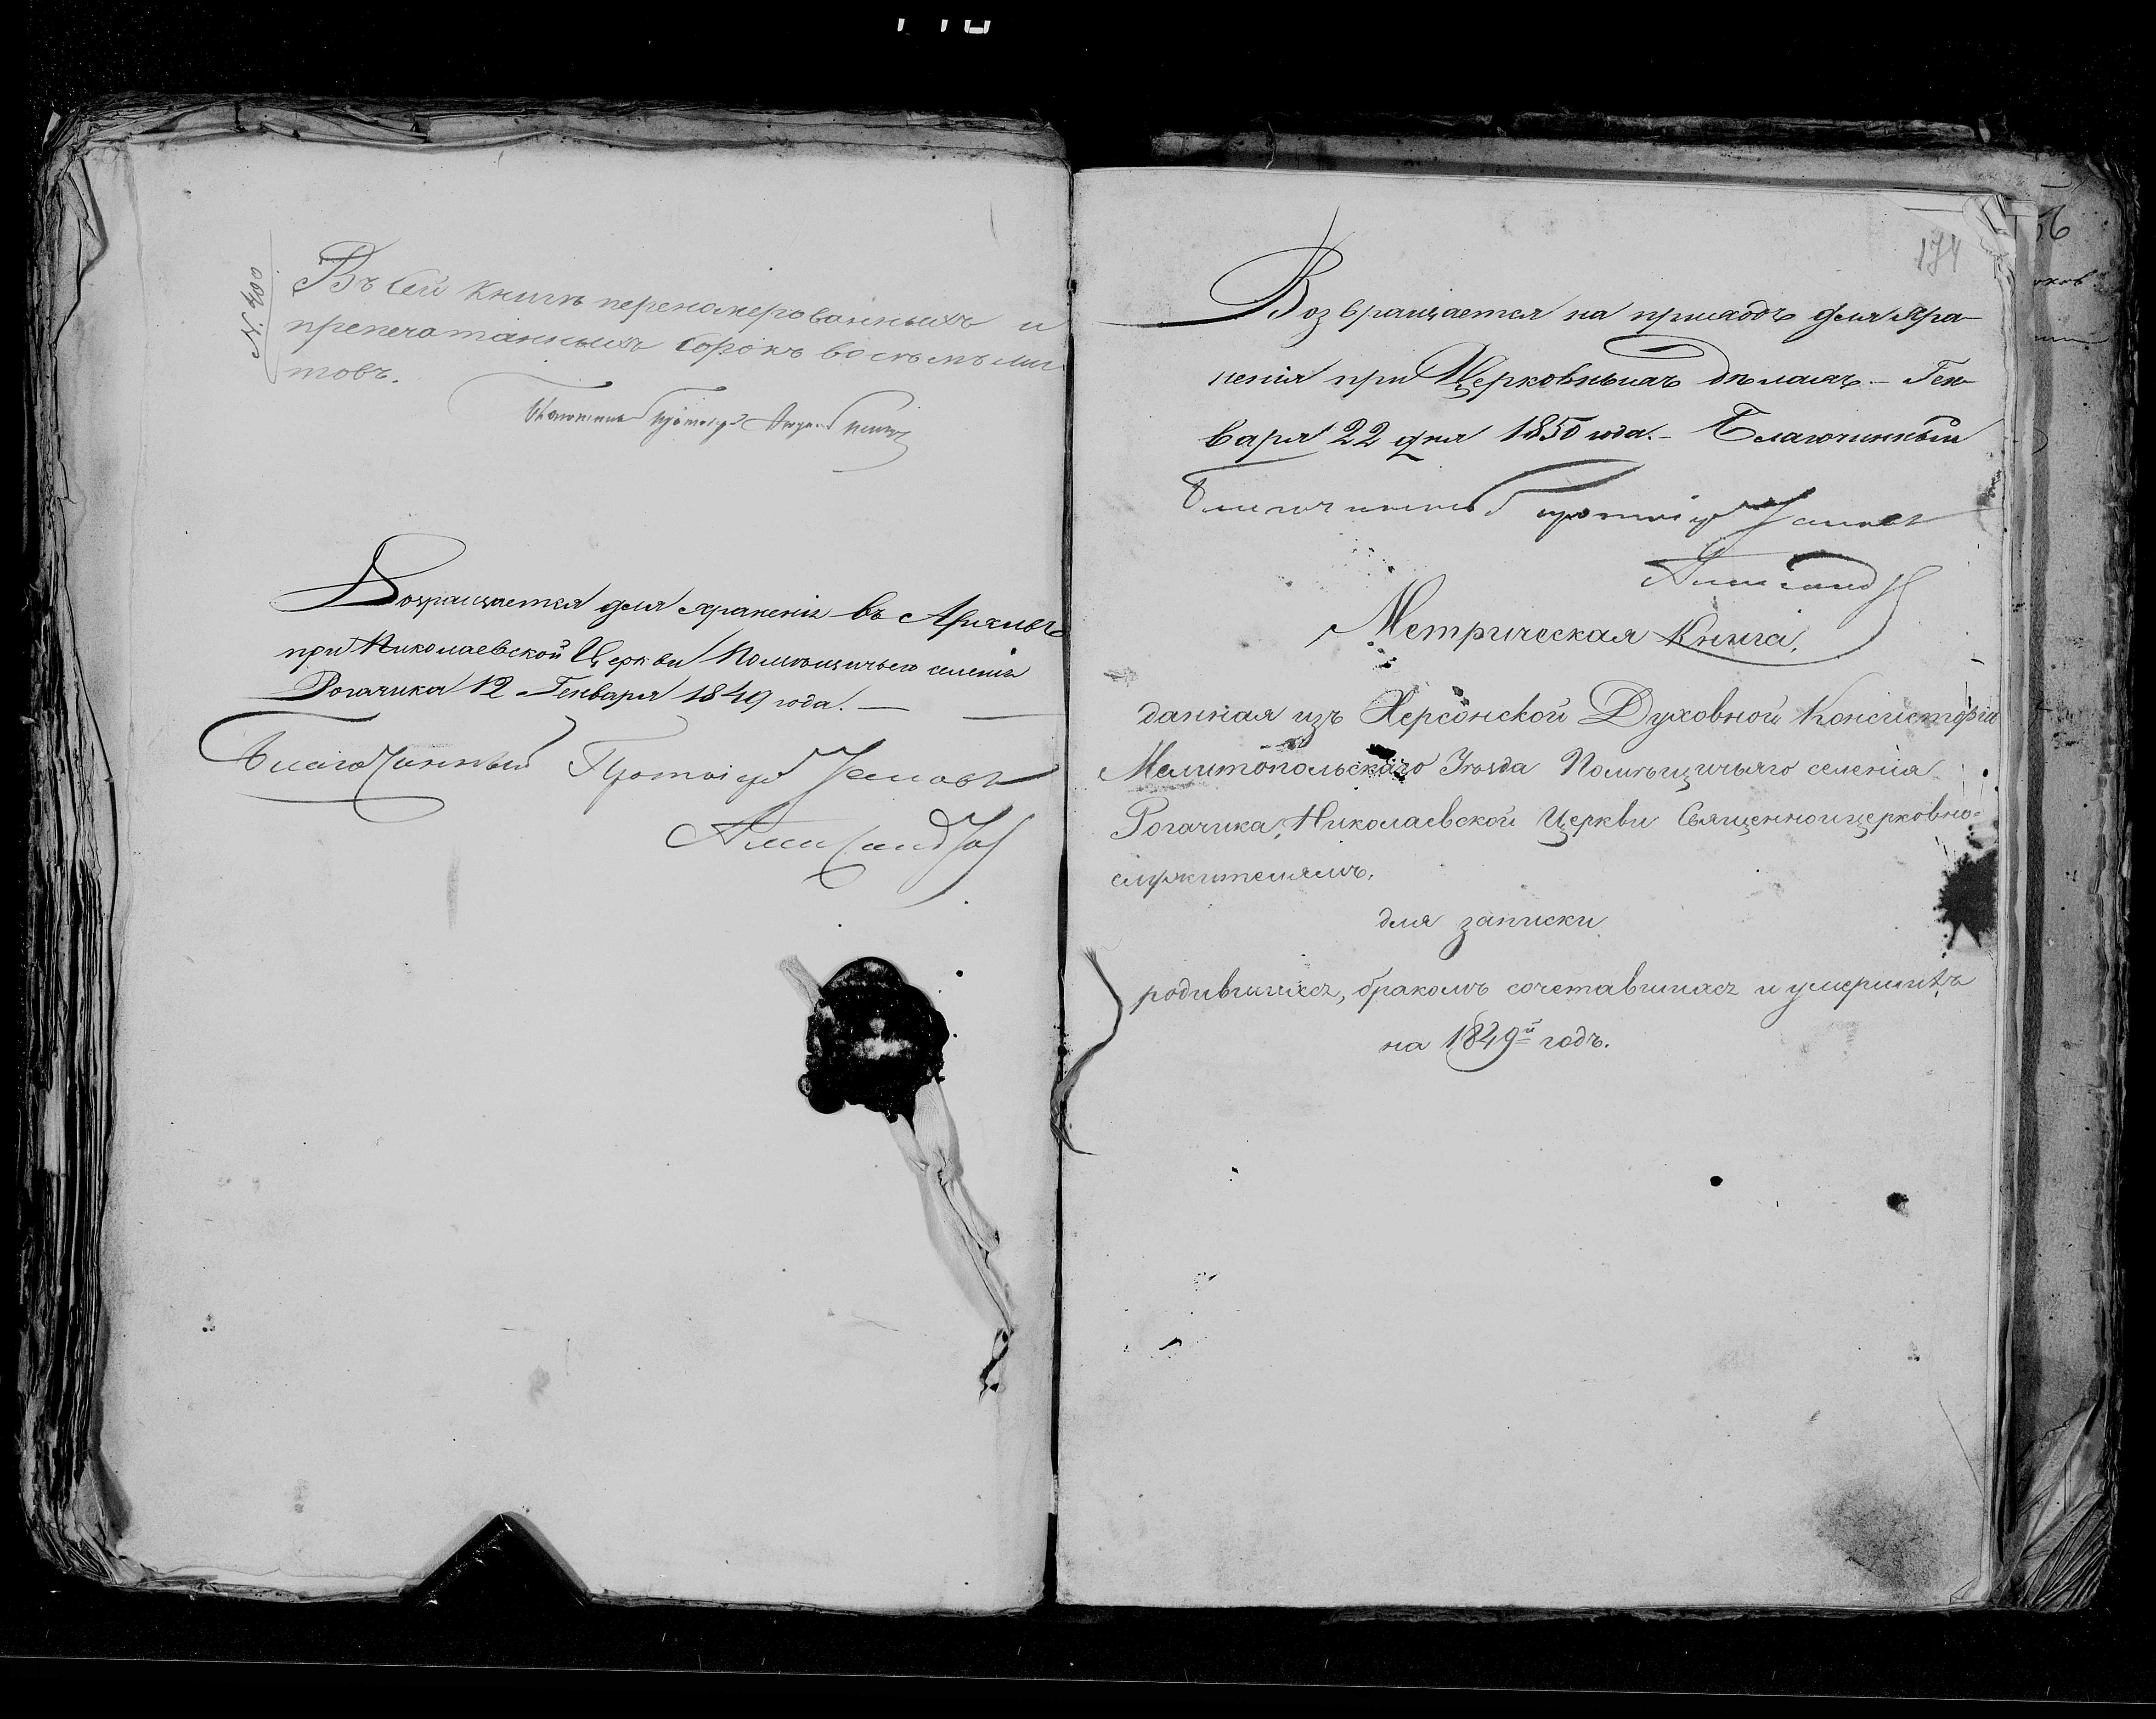 N. 400
Въ сей книгѣ перономерованныхъ и
препечатанныхъ сорокъ восемь лис
товъ.
Возращается для храненія въ Архивѣ
при Николаевской Церкви Помѣщичьего селенія
Рогачика 12 Генваря 1849 года. —
Благочинный Протоіер
174
Возвращается на приходъ для хра-
ненія при Церковныхъ дѣлахъ. – Ген-
варя 22 дня 1850 года. – Благочинный
Благочинный Протоіер
Метрическая Книга,
данная изъ Херсонской Духовной Консисторіи
Мелитопольскаго Уѣзда Помѣщичьяго селенія
Рогачика, Николаевской Церкви Священноицерковно-
служителямъ,
для записки
родившихся, бракомъ сочетавшихся и умершихъ
на 1849й годъ.